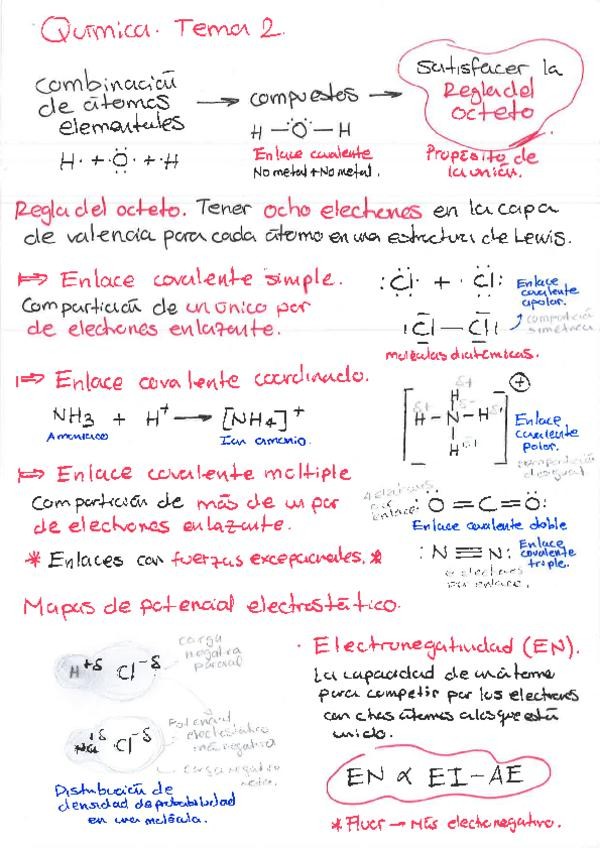 Química. Tema 2.
Combinación
de átomos
elementales
→ compuestos →
satisfacer la
Regla del
octeto
H· + ·Ö· + ·H
H — Ö — H
Enlace covalente
No metal + No metal.
Propósito de
la unión.
Regla del octeto. Tener ocho electrones en la capa
de valencia para cada átomo en una estructura de Lewis.
Enlace covalente simple.
Compartición de un único par
de electrones enlazante.
:Cl· + ·Cl:
Enlace
covalente
apolar.
Cl — Cl
compartición
simétrica
moléculas diatómicas.
Enlace covalente coordinado.
NH3 + H+ → [NH4]+
Amoniaco
Ion amonio.
H
H — N — H
H
+
δ+
δ-
Enlace
covalente
polar.
compartición
desigual
Enlace covalente múltiple
Compartición de más de un par
de electrones enlazante.
* Enlaces con fuerzas excepcionales. *
4 electrones
por
enlace.
:Ö = C = Ö:
Enlace covalente doble
:N ≡ N:
Enlace
covalente
triple.
6 electrones
por enlace.
Mapas de potencial electrostático.
H +δ Cl -δ
carga
negativa
parcial
Na +δ Cl -δ
Potencial
electrostático
más negativo
carga negativa
neta.
Distribución de
densidad de probabilidad
en una molécula.
· Electronegatividad (EN).
La capacidad de un átomo
para competir por los electrones
con otros átomos a los que está
unido.
EN ∝ EI - AE
* Fluor → Más electronegativo.